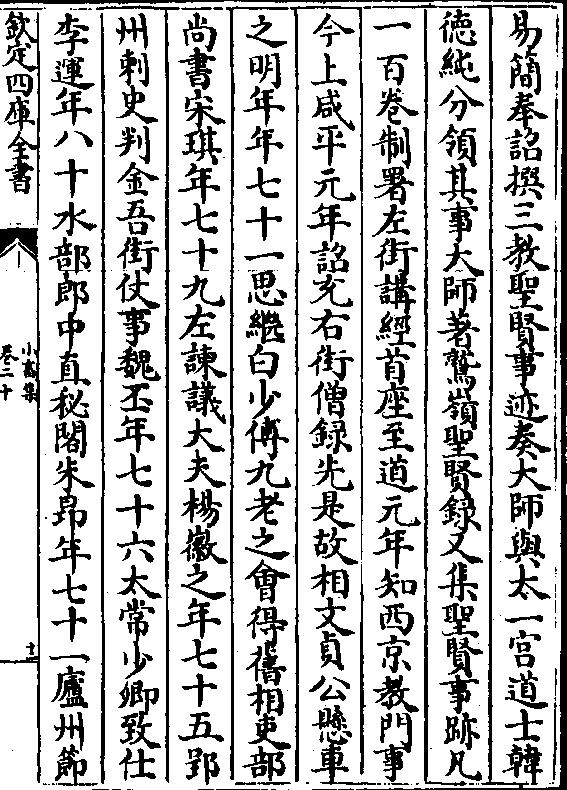 易簡奉詔撰三教聖賢事迹奏大師與太一宫道士韓
徳純分領其事大師著鷲嶺聖賢録又集聖賢事跡凡
一百卷制署左街講經首座至道元年知西京教門事
今上咸平元年詔充右街僧録先是故相文貞公懸車
之明年年七十一思繼白少傅九老之會得舊相吏部
尚書宋琪年七十九左諫議大夫楊徽之年七十五郢
州刺史判金吾街仗事魏丕年七十六太常少卿致仕
李運年八十水部郎中直秘閣朱昻年七十一廬州節
欽定四庫全書
小畜集
卷二十
十一